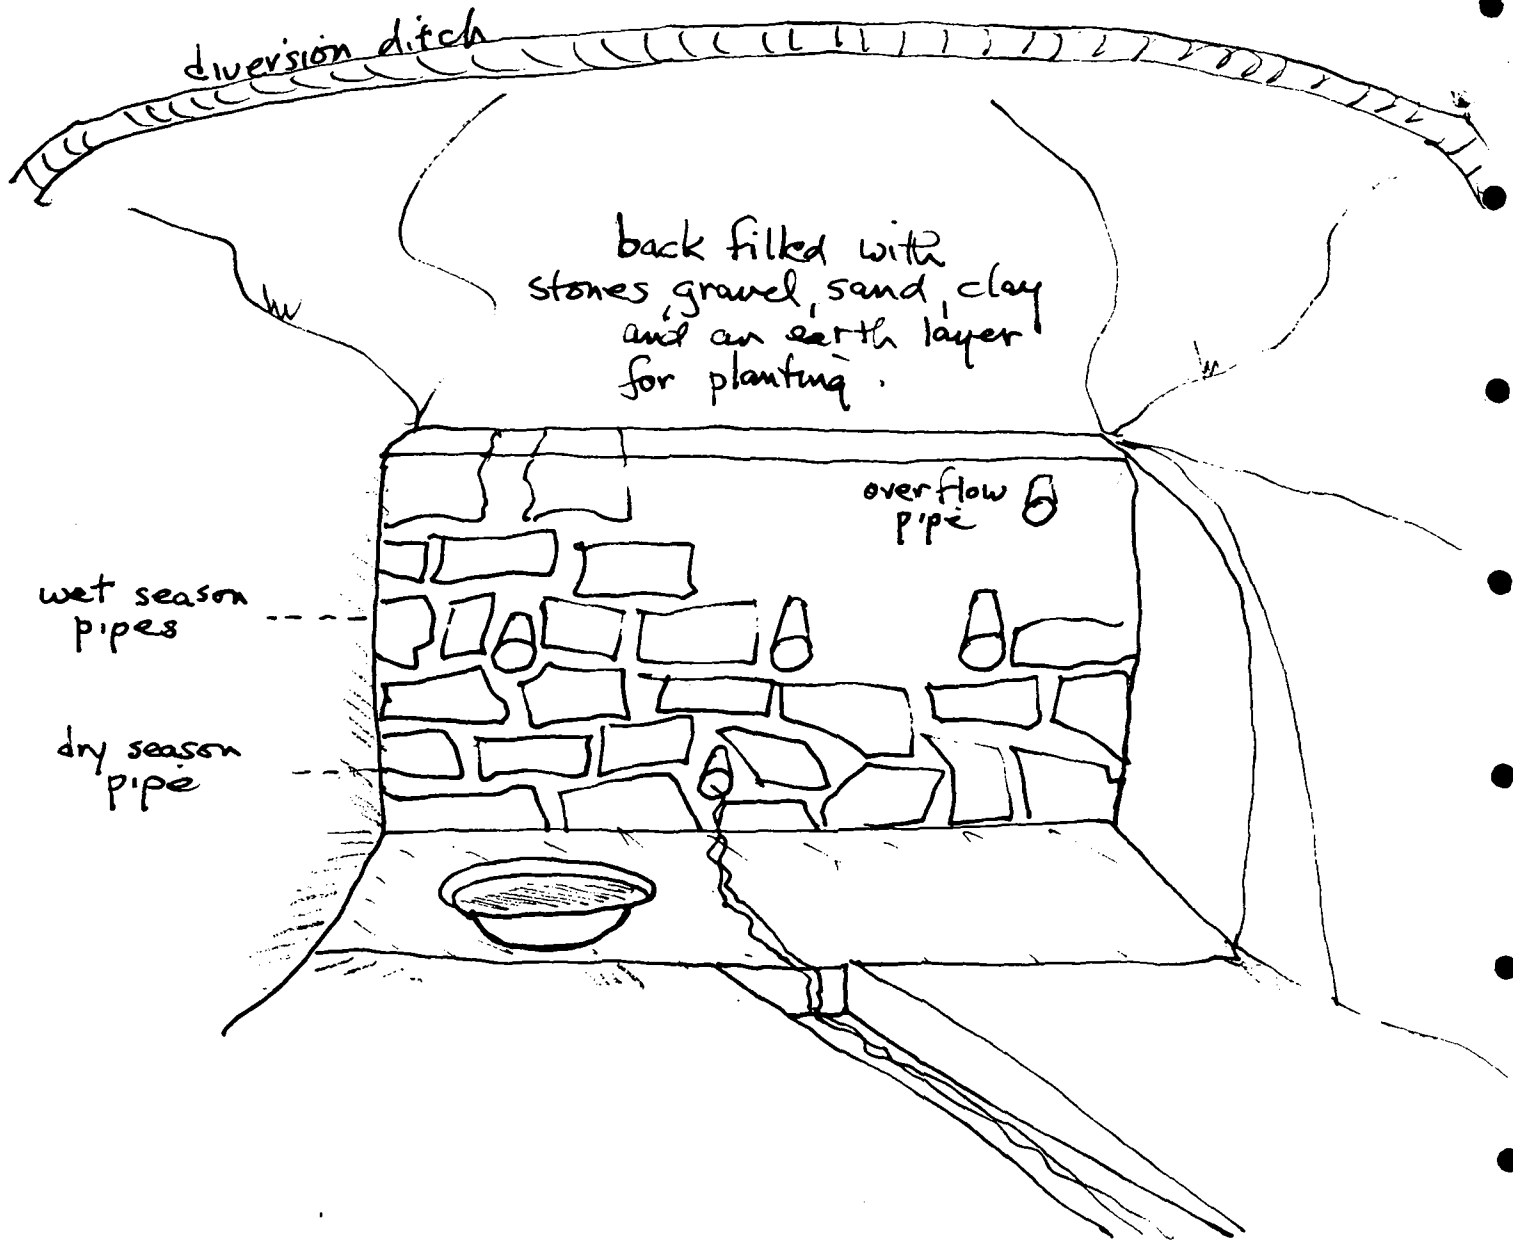 diversion ditch
back filled with
stones, gravel, sand, clay
and an earth layer
for planting.
overflow
pipe
wet season
pipes
dry season
pipe